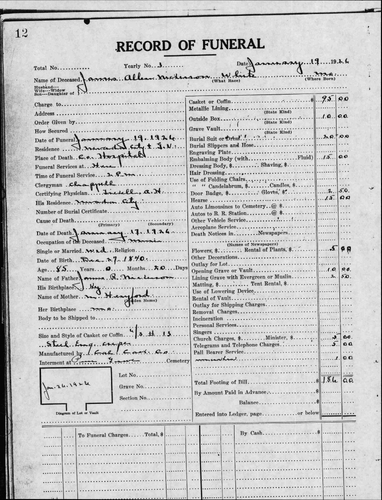 12
RECORD OF FUNERAL
Total No. Yearly No. 3 Date January 19 1926
Name of Deceased James Allen White Mo.
(What Race) (Where Born)
Husband—
Wife—Widow
Son—Daughter of
Charge to
Address
Order Given by
How Secured
Date of Funeral January 19, 1926
Residence Nevada City
Place of Death Co. Hospital
Funeral Services at Here
Time of Funeral Service 2 P.M.
Clergyman Chappell
Certifying Physician
His Residence Nevada City
Number of Burial Certificate
Cause of Death
(Primary) (Secondary)
Date of Death January 17, 1926
Occupation of the Deceased Miner
Single or Married Wid. Religion
Date of Birth Dec. 27, 1840.
Age 85 Years 0 Months 20 Days
Name of Father James
His Birthplace Ky
Name of Mother M.
Her Birthplace Mo.
Body to be Shipped to
Size and Style of Casket or Coffin
Manufactured by
Interment at Cemetery
Jan. 26, 1926
Lot No.
Grave No.
Section No.
Diagram of Lot or Vault
Casket or Coffin 95 00
Metallic Lining
(State Kind)
Outside Box 10 00
(State Kind)
Grave Vault
Burial Suit or 20 00
Burial Slippers and Hose
Engraving Plate
Embalming Body (with Fluid) 15 00
Dressing Body, $ Shaving, $
Hair Dressing
Use of Folding Chairs
" " Candelabrum, $ Candles, $
Door Badge, $ Gloves, $ 2 50
Hearse 15 00
Auto Limousines to Cemetery @ $
Autos to R. R. Station @ $
Other Autos
Death Notices in Newspapers
(Names of Newspapers)
Flowers, $ Rental of Plants, $ 5 00
Other Decorations
Outlay for Lot
Opening Grave or Vault 10 00
Lining Grave with Evergreen or Muslin 2 50
Matting, $ Tent Rental, $
Use of Lowering Device
Rental of Vault
Outlay for Shipping Charges
Removal Charges
Incineration
Personal Services
Singers
Church Charges, $ Minister, $ 5 00
Telegrams and Telephone Charges 5 00
Pall Bearer Service
1 00
Total Footing of Bill 186 00
By Amount Paid in Advance
Balance
Entered into Ledger, page or below
To Funeral Charges Total, $ By Cash $